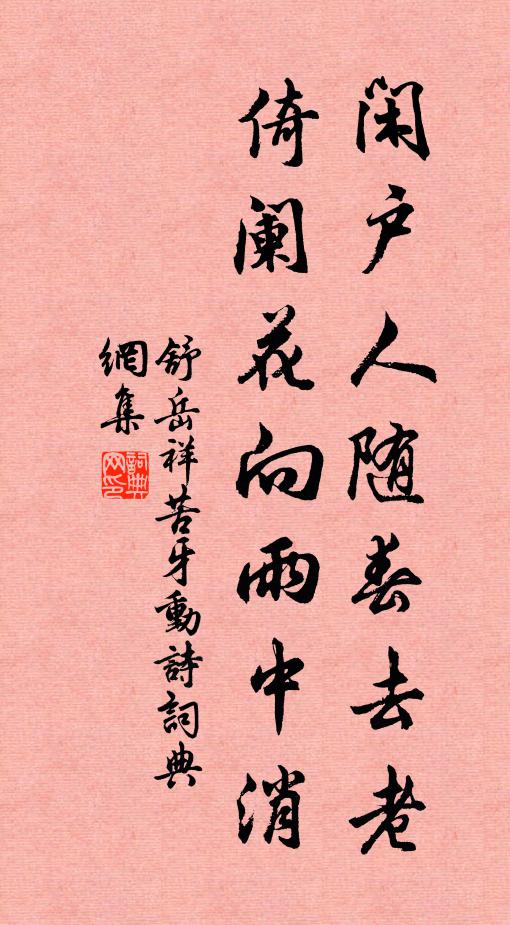 閑户人随春去老
倚阑花向雨中消
舒岳祥苦牙動詩詞典
網集
詞典网印